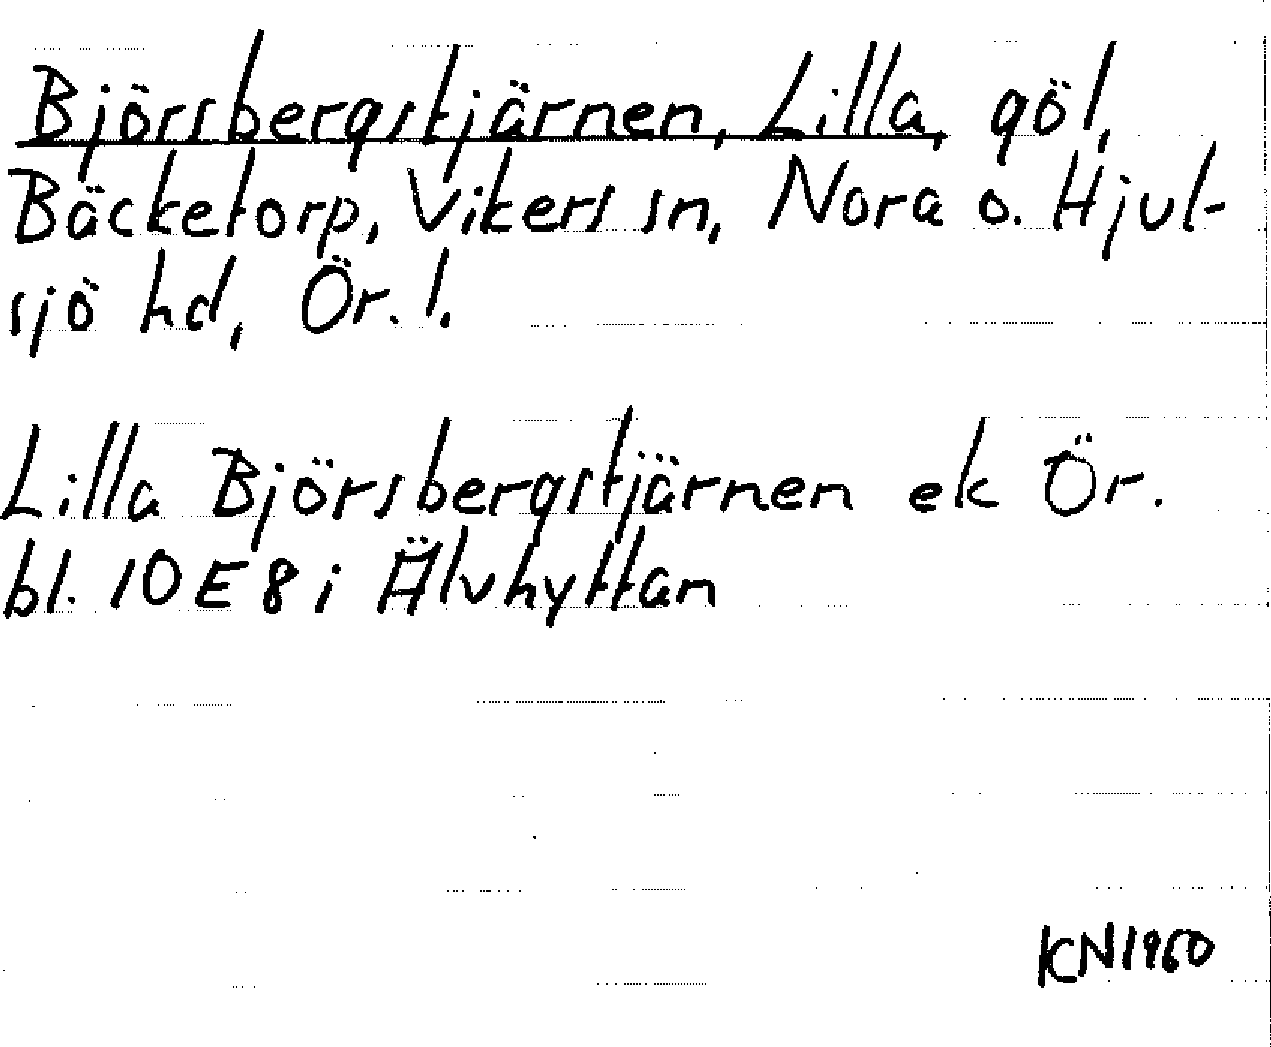 Björsbergstjärnen, Lilla, göl,
Bäcketorp, Vikers sn, Nora o. Hjul-
sjö hd, Ör. l.
Lilla Björsbergstjärnen ek Ör.
bl. 10E8i Älvhyttan
KN1960